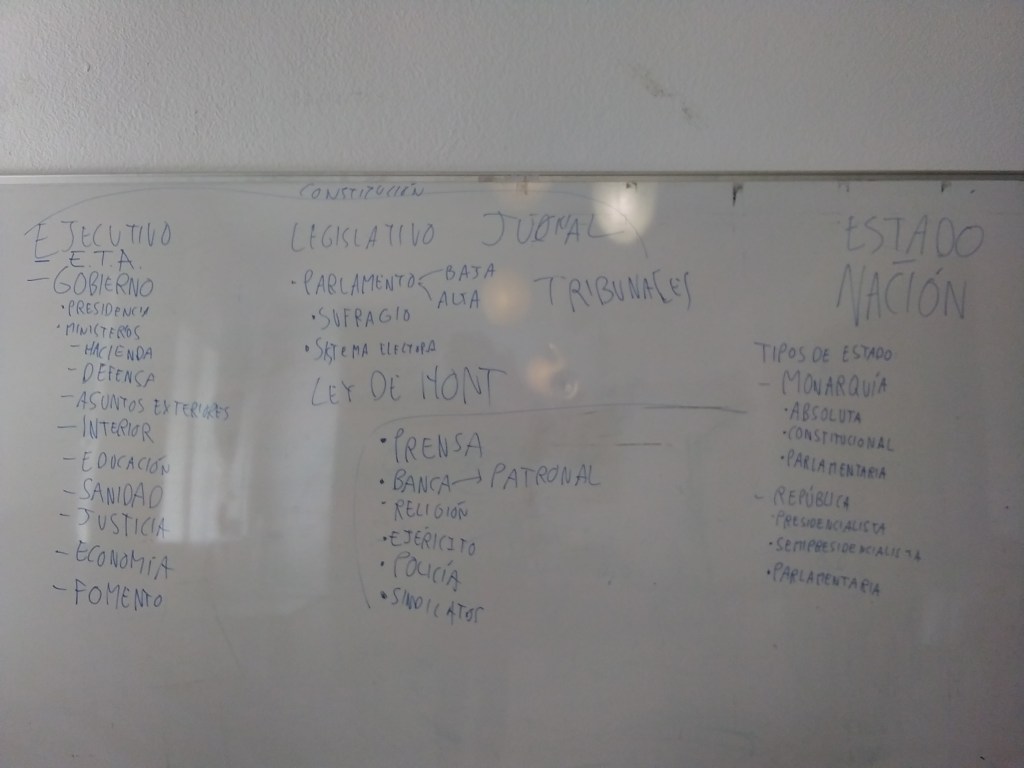 CONSTITUCIÓN
EJECUTIVO
E.T.A.
- GOBIERNO
• PRESIDENCIA
• MINISTEROS
- HACIENDA
- DEFENSA
- ASUNTOS EXTERIORES
- INTERIOR
- EDUCACIÓN
- SANIDAD
- JUSTICIA
- ECONOMÍA
- FOMENTO
LEGISLATIVO
• PARLAMENTO BAJA
ALTA
• SUFRAGIO
• SISTEMA ELECTORA
LEY DE HONT
TRIBUNALES
• PRENSA
• BANCA → PATRONAL
• RELIGIÓN
• EJÉRCITO
• POLICÍA
• SINDICATOS
ESTADO
NACIÓN
TIPOS DE ESTADO
- MONARQUÍA
• ABSOLUTA
• CONSTITUCIONAL
• PARLAMENTARIA
- REPÚBLICA
• PRESIDENCIALISTA
• SEMIPRESIDENCIALISTA
• PARLAMENTARIA